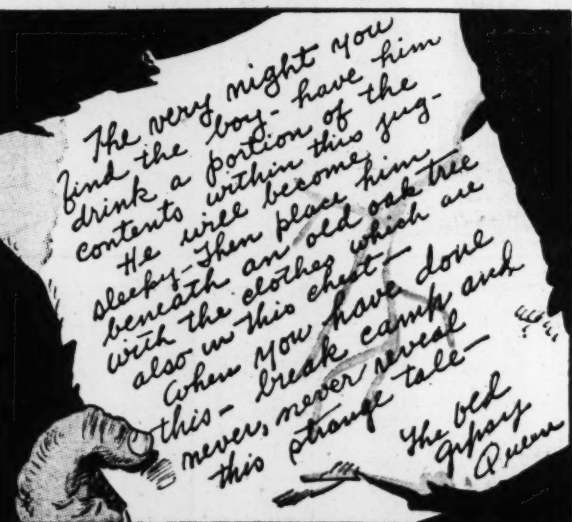 The very night you
find the boy - have him
drink a portion of the
contents within this jug -
He will become
sleepy - Then place him
beneath an old oak tree
with the clothes which are
also in this chest -
When you have done
this - break camp and
never, never reveal
this strange tale -
The old
gipsy
Queen